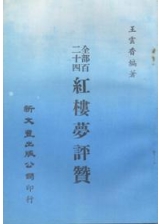 王雲香編著
全部百
二十四
紅樓夢評贊
新文豐出版公司印行